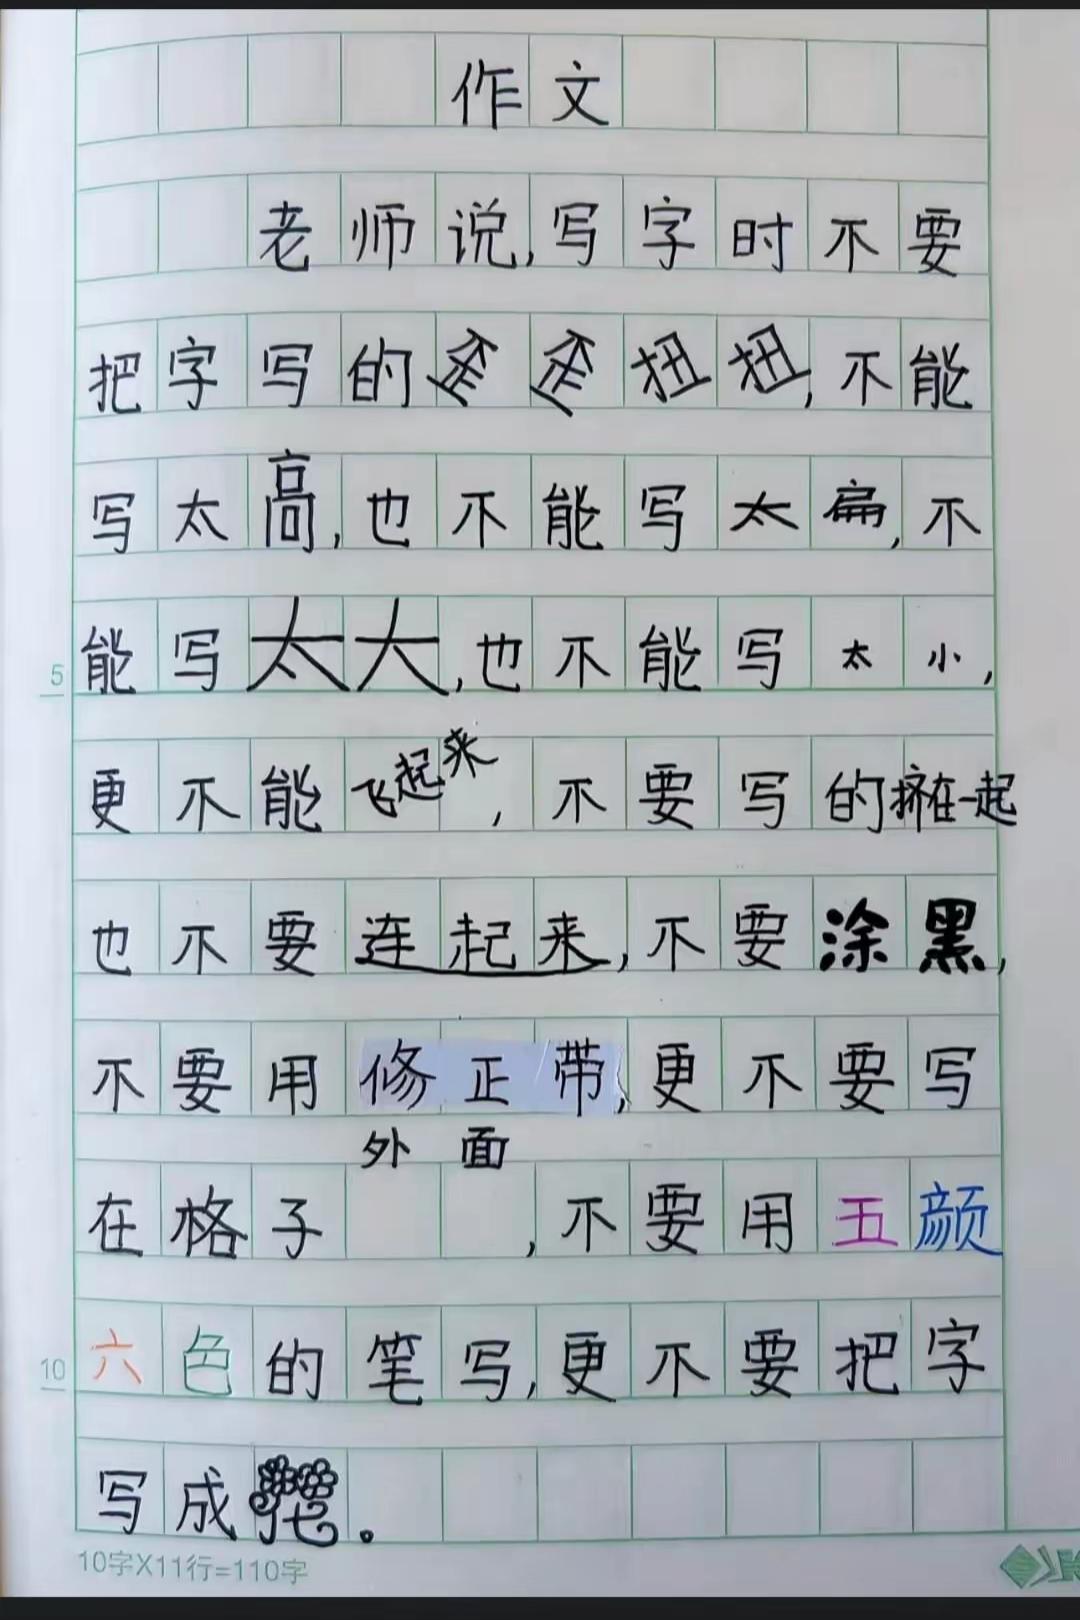 作文
老师说,写字时不要
把字写的歪歪扭扭,不能
写太高,也不能写太扁,不
能写太大,也不能写太小,
5
更不能飞起来,不要写的挤在一起
也不要连起来,不要涂黑,
不要用修正带,更不要写
外面
在格子,不要用五颜
六色的笔写,更不要把字
10
写成花。
10字X11行=110字